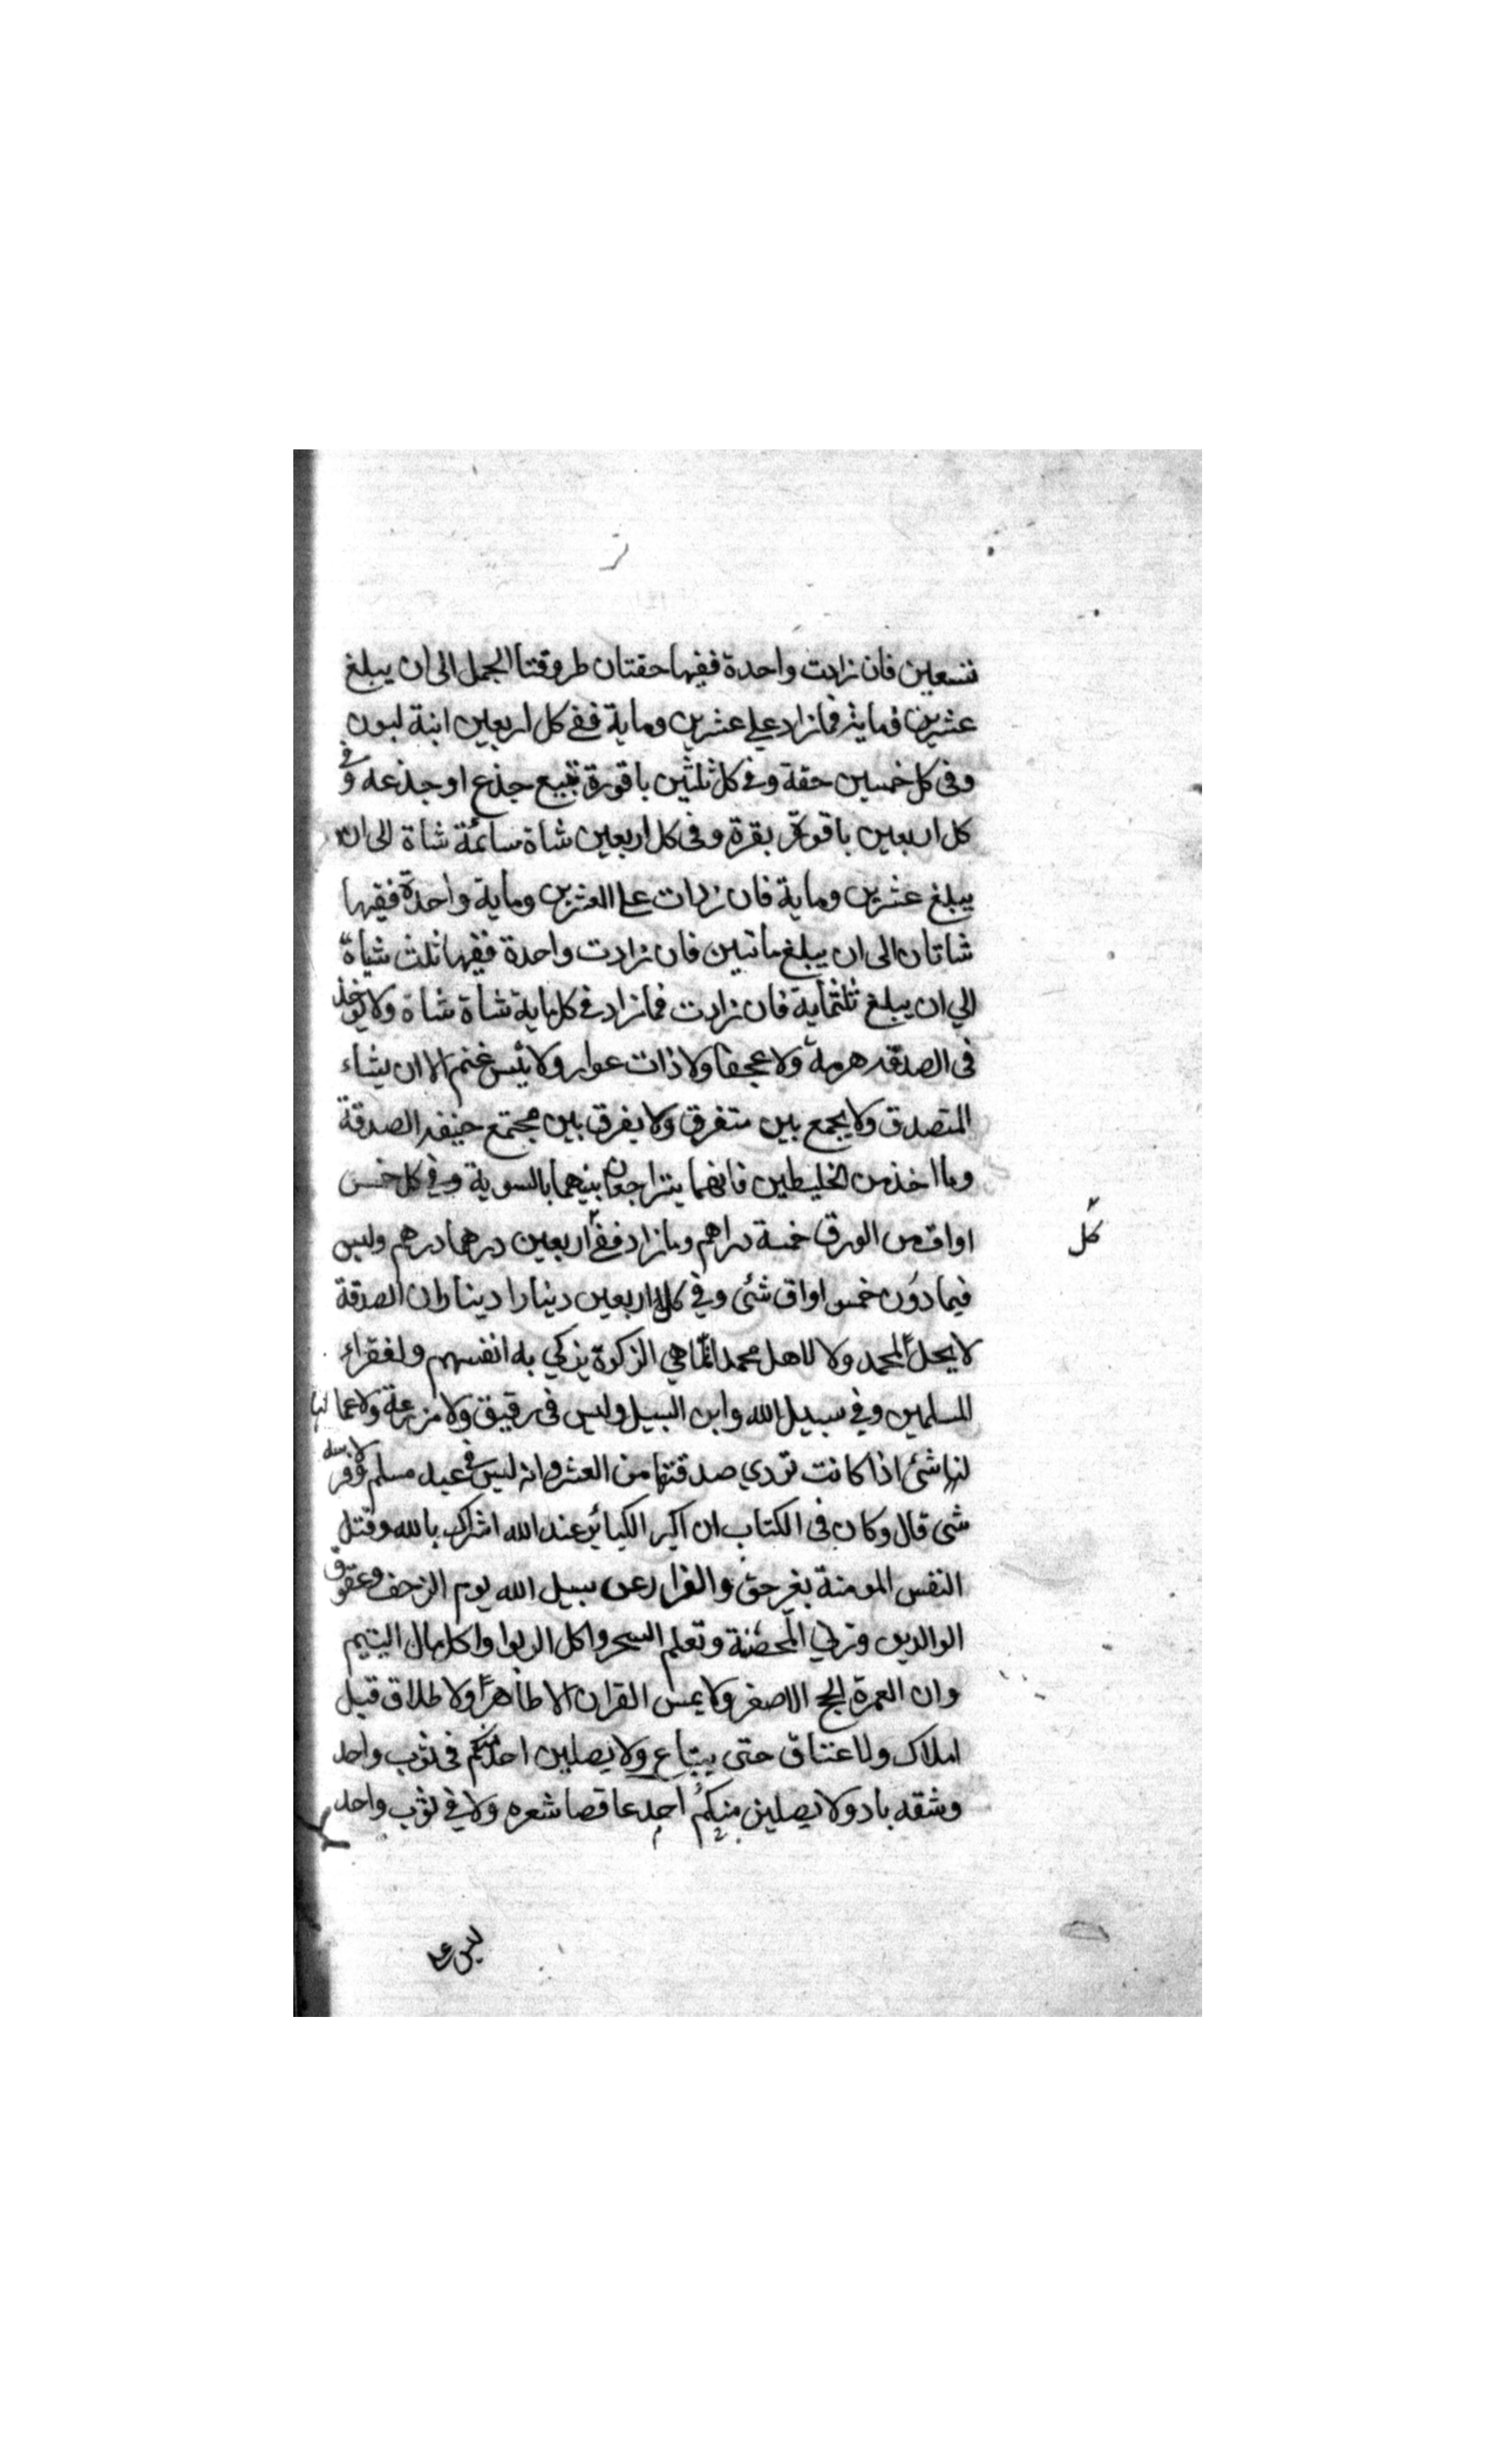 تسعين فان زادت واحدة ففيها حقتان طروقتا الجمل الى ان يبلغ
عشرين وماية فما زاد على عشرين وماية ففى كل اربعين ابنة لبون
وفى كل خمسين حقة وفى كل ثلثين باقورة تبيع جذع او جذعه وفى
كل اربعين باقورة بقرة وفى كل اربعين شاة سائمة شاة الى ان
يبلغ عشرين وماية فان زادت على العشرين وماية واحدة ففيها
شاتان الى ان يبلغ ماتين فان زادت واحدة ففيها ثلث شياة
الي ان يبلغ ثلثماية فان زادت فما زاد فى كل ماية شاة شاة ولا يوخذ
فى الصدقه هرمة ولا عجفا ولا ذات عوار ولا تيس غنم الا ان يشاء
المتصدق ولا يجمع بين متفرق ولا يفرق بين مجتمع خيفه الصدقة
وما اخذ من الخليطين فانهما يتراجعان بينهما بالسوية وفى كل خمس
اواق من الورق خمسة دراهم وما زاد ففى اربعين درهما درهم وليس
كل
فيما دون خمس اواق شئى وفى كل اربعين دينارا دينار وان الصدقة
لا يحل لمحمد ولا لاهل محمد انما هي الزكوة يزكي به انفسهم ولفقراء
المسلمين وفى سبيل الله وابن السبيل وليس فى رقيق ولا مزرعة ولا عمالها
شئى اذا كانت تودي صدقتها من العشر وانه ليس فى عبد مسلم ولا فرسه
شى قال وكان فى الكتاب ان اكبر الكبائر عند الله اشراك بالله وقتل
النفس المومنة بغير حق والفرار عن سبيل الله يوم الزحف وعقوق
الوالدين ورمي المحصنة وتعلم السحر واكل الربوا واكل مال اليتيم
وان العمرة الحج الاصغر ولا يمس القران الا طاهرا ولا طلاق قبل
املاك ولا عتاق حتى يبتاع ولا يصلين احد منكم فى ثوب واحد
وشقه باد ولا يصلين منكم احد عاقصا شعره ولا فى ثوب واحد
ليس على